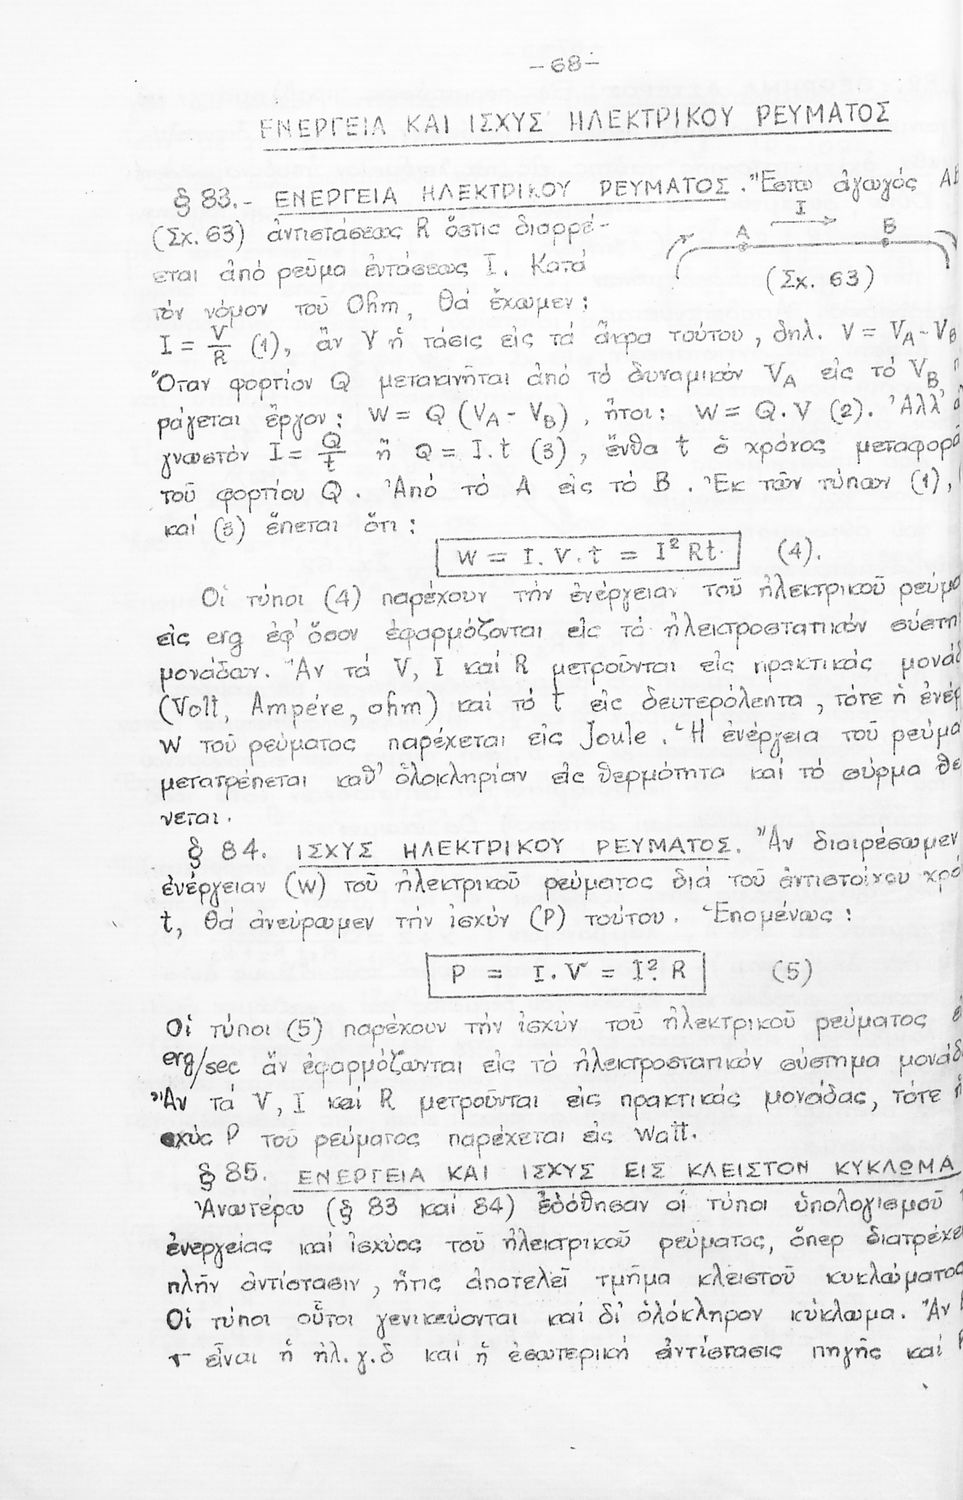 -68-
ΕΝΕΡΓΕΙΑ ΚΑΙ ΙΣΧΥΣ ΗΛΕΚΤΡΙΚΟΥ ΡΕΥΜΑΤΟΣ
§ 83.- ΕΝΕΡΓΕΙΑ ΗΛΕΚΤΡΙΚΟΥ ΡΕΥΜΑΤΟΣ. Ἔστω ἀγωγός ΑΒ
(Σχ. 63) ἀντιστάσεως R ὅστις διαρρέ-
εται ἀπό ρεῦμα ἐντάσεως I. Κατά
τόν νόμον τοῦ Ohm, θά ἔχωμεν:
I
A B
(Σχ. 63)
I = V/R (1), ἄν V ἡ τάσις εἰς τά ἄκρα τούτου, δηλ. V = V_A - V_B
Ὅταν φορτίον Q μετακινῆται ἀπό τό δυναμικόν V_A εἰς τό V_B π
ράγεται ἔργον: W = Q (V_A - V_B), ἤτοι: W = Q.V (2). Ἀλλ' ὡ
γνωστόν I = Q/t ἤ Q = I.t (3), ἔνθα t ὁ χρόνος μεταφορᾶ
τοῦ φορτίου Q. Ἀπό τό Α εἰς τό Β. Ἐκ τῶν τύπων (1), (
καί (3) ἕπεται ὅτι:
W = I.V.t = I²Rt. (4).
Οἱ τύποι (4) παρέχουν τήν ἐνέργειαν τοῦ ἠλεκτρικοῦ ρεύμα
εἰς erg ἐφ' ὅσον ἐφαρμόζονται εἰς τό ἠλεκτροστατικόν σύστη
μονάδων. Ἄν τά V, I καί R μετροῦνται εἰς πρακτικάς μονάδ
(Volt, Ampére, ohm) καί τό t εἰς δευτερόλεπτα, τότε ἡ ἐνέρ
W τοῦ ρεύματος παρέχεται εἰς Joule. Ἡ ἐνέργεια τοῦ ρεύμα
μετατρέπεται καθ' ὁλοκληρίαν εἰς θερμότητα καί τό σύρμα θε
νεται.
§ 84. ΙΣΧΥΣ ΗΛΕΚΤΡΙΚΟΥ ΡΕΥΜΑΤΟΣ. Ἄν διαιρέσωμεν
ἐνέργειαν (W) τοῦ ἠλεκτρικοῦ ρεύματος διά τοῦ ἀντιστοίχου χρό
t, θά ἀνεύρωμεν τήν ἰσχύν (P) τούτου. Ἑπομένως:
P = I.V = I².R (5)
Οἱ τύποι (5) παρέχουν τήν ἰσχύν τοῦ ἠλεκτρικοῦ ρεύματος ε
erg/sec ἄν ἐφαρμόζωνται εἰς τό ἠλεκτροστατικόν σύστημα μονάδ
Ἄν τά V, I καί R μετροῦνται εἰς πρακτικάς μονάδας, τότε ἡ
σχύς P τοῦ ρεύματος παρέχεται εἰς Watt.
§ 85. ΕΝΕΡΓΕΙΑ ΚΑΙ ΙΣΧΥΣ ΕΙΣ ΚΛΕΙΣΤΟΝ ΚΥΚΛΩΜΑ
Ἀνωτέρω (§ 83 καί 84) ἐδόθησαν οἱ τύποι ὑπολογισμοῦ τ
ἐνεργείας καί ἰσχύος τοῦ ἠλεκτρικοῦ ρεύματος, ὅπερ διατρέχε
πλῆν ἀντίστασιν, ἥτις ἀποτελεῖ τμῆμα κλειστοῦ κυκλώματος
Οἱ τύποι οὗτοι γενικεύονται καί δι' ὁλόκληρον κύκλωμα. Ἄν
r εἶναι ἡ ἠλ.γ.δ καί ἡ ἐσωτερική ἀντίστασις πηγῆς καί R